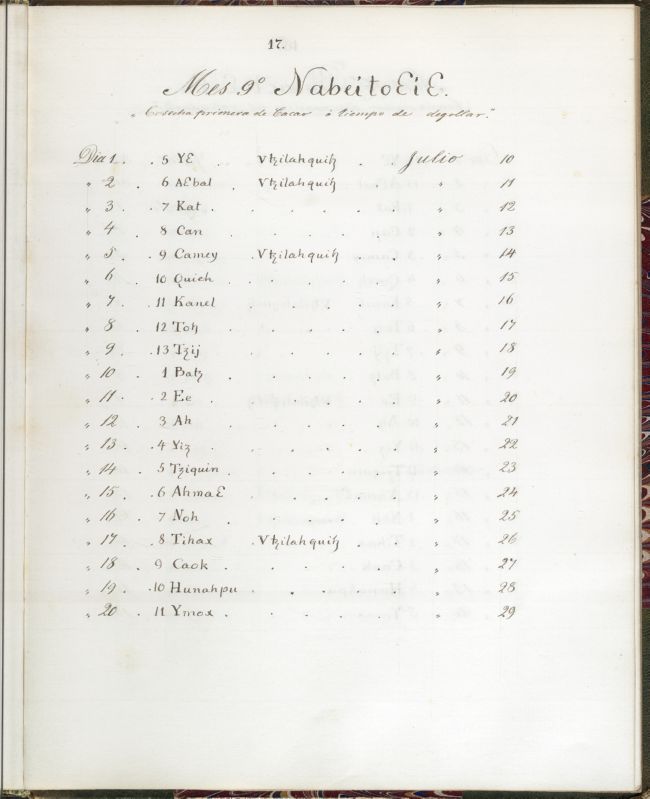 17.
Mes 9º Nabeitoꜫiꜫ.
"Cosecha primera de Cacao ó tiempo de degollar."
Dia 1 . . 5 Yꜫ . Vꜩilahquiꜩ . . Julio 10
" 2 . 6 Aꜫbal . Vꜩilahquiꜩ . " 11
" 3 . . 7 Kat . . . . . . " 12
" 4 . 8 Can . . . . . " 13
" 5 . . 9 Camey . Vꜩilahquiꜩ . . " 14
" 6 . 10 Quich . . . . . " 15
" 7 . . 11 Kanel . . . . " 16
" 8 . 12 Toꜩ . . . . . " 17
" 9 . . 13 Tzij . . . . " 18
" 10 . 1 Batz . . . . . " 19
" 11 . . 2 Ee . . . . . " 20
" 12 . 3 Ah . . . . . " 21
" 13 . . 4 Yiz . . . . . " 22
" 14 . 5 Tziquin . . . . . " 23
" 15 . . 6 Ahmaꜫ . . . . " 24
" 16 . 7 Noh . . . . . " 25
" 17 . . 8 Tihax . Vꜩilahquiꜩ . " 26
" 18 . 9 Caok . . . . . " 27
" 19 . . 10 Hunahpu . . . . " 28
" 20 . 11 Ymox . . . . . " 29